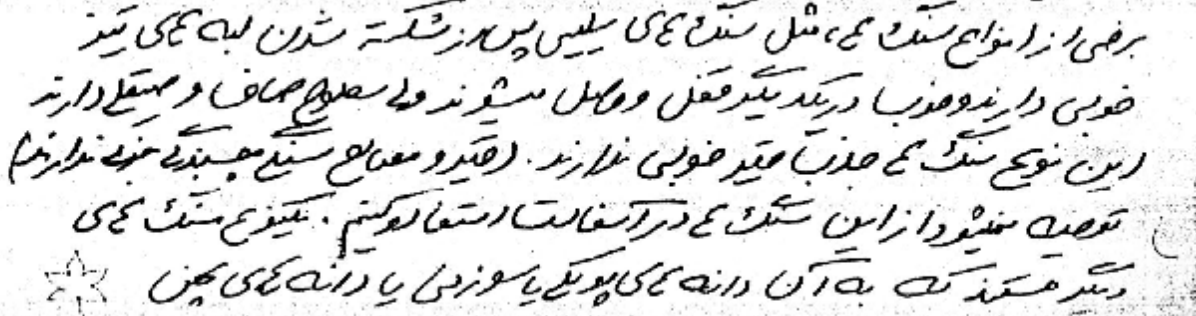 برخی از انواع سنگ ها، مثل سنگ های سیلیس پس از شکسته شدن لبه های تیز
خوبی دارند و خوب در یکدیگر قفل و وصل میشوند ولی سطوح صاف و صیقلی دارند
این نوع سنگ ها جذب قیر خوبی ندارند. (قیر و مصالح سنگی چسبندگی خوبی ندارند)
توصیه نمیشود از این سنگ ها در آسفالت استفاده کنیم. یکنوع سنگ های
دیگر هستند که به آن دانه های پولکی یا سوزنی یا دانه های پهن